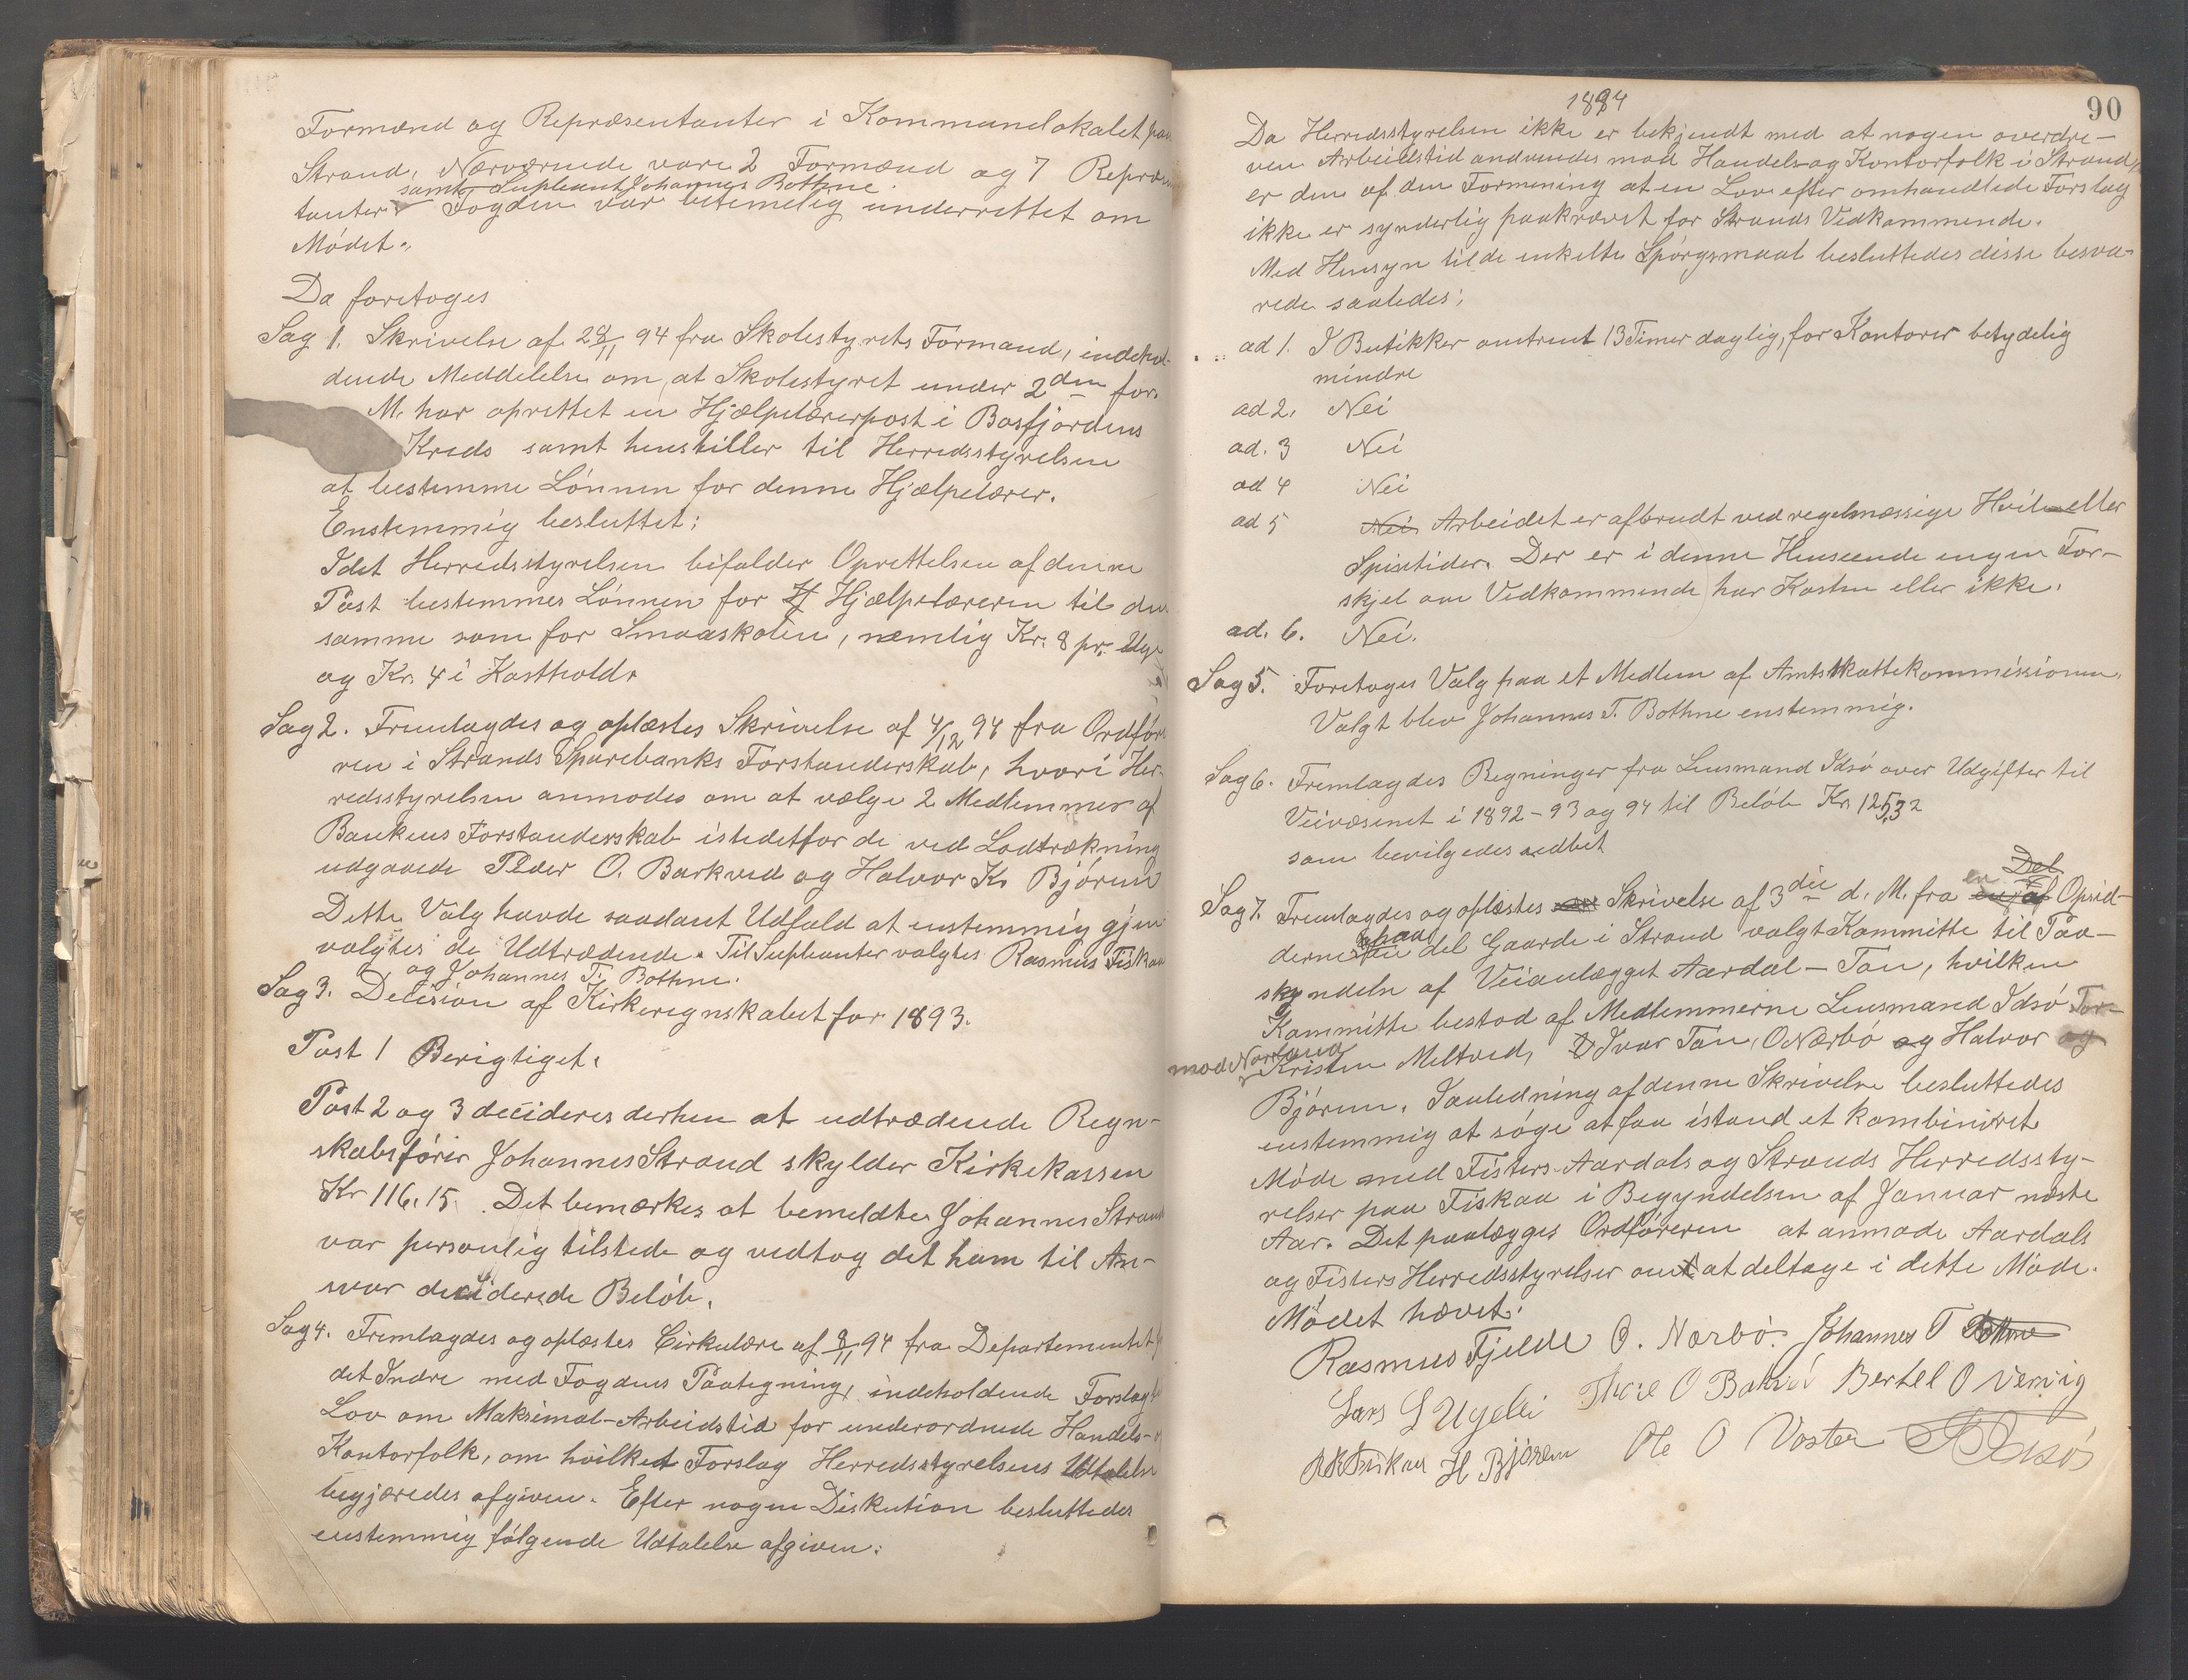 Formænd og Repræsentanter i Kommunelokalet paa
Strand, Nærværende vare 2 Formænd og 7 Repræsen
samt Supleant Johannes Bothne.
tanter Fogden var betimelig underrettet om
Mødet.
Da foretoges
Sag 1. Skrivelse af 28/11 94 fra Skolestyrets Formand, indehol-
dende Meddelelse om, at Skolestyret under 2den for.
M. har oprettet en Hjælpelærerpost i Bosfjordens
Kreds samt henstiller til Herredsstyrelsen
at bestemme Lønnen for denne Hjælpelærer.
Enstemmig besluttet:
Idet Herredsstyrelsen bifalder Oprettelsen af denne
Post bestemmes Lønnen for Hjælpelæreren til den
samme som for Smaaskolen, nemlig Kr. 8 pr. Uge
og Kr. 4 i Kosthold.
Sag 2. Fremlagdes og oplæstes Skrivelse af 4/12 94 fra Ordføre
ren i Strands Sparebanks Forstanderskab, hvori Her-
redsstyrelsen anmodes om at vælge 2 Medlemmer af
Bankens Forstanderskab istedetfor de ved Lodtrækning
udgaaede Peder O. Barkved og Halvor K. Bjøren
Dette Valg havde saadant Udfald at enstemmig gjen
valgtes de Udtrædende. Til Supleanter valgtes Rasmus Fiskaa
og Johannes T. Bothne.
Sag 3. Decision af Kirkeregnskabet for 1893.
Post 1 Berigtiget.
Post 2 og 3 decideres derhen at udtrædende Regn-
skabsfører Johannes Strand skylder Kirkekassen
Kr 116.15. Det bemærkes at bemeldte Johannes Strand
var personlig tilstede og vedtog det ham til An-
svar deciderede Beløb.
Sag 4. Fremlagdes og oplæstes Cirkulære af 9/11 94 fra Departementet f
det Indre med Fogdens Paategning, indeholdende Forslag til
Lov om Maksimal-Arbeidstid for underordnede Handels- og
Kontorfolk, om hvilket Forslag Herredsstyrelsens Udtalelse
begjæredes afgiven. Efter nogen Diskution besluttedes
enstemmig følgende Udtalelse afgiven:
1894
90
Da Herredsstyrelsen ikke er bekjendt med at nogen overdre-
ven Arbeidstid andvendes mod Handels- og Kontorfolk i Strand,
er den af den Formening at en Lov efter omhandlede Forslag
ikke er synderlig paakrævet for Strands Vedkommende.
Med Hensyn til de enkelte Spørgsmaal besluttedes disse besva-
rede saaledes:
ad 1. I Butikker omtrent 13 Timer daglig, for Kontorer betydelig
mindre
ad 2. Nei
ad. 3 Nei
ad 4 Nei
ad 5 Nei Arbeidet er afbrudt ved regelmæssige Hvile eller
Spisetider. Der er i denne Henseende ingen For-
skjel om Vedkommende har Kosten eller ikke.
ad. 6. Nei.
Sag 5. Foretoges Valg paa et Medlem af Amtsskattekommissionen.
Valgt blev Johannes T. Bothne enstemmig.
Sag 6. Fremlagdes Regninger fra Lensmand Idsø over Udgifter til
Veivæsenet i 1892-93 og 94 til Beløb Kr 125,32
som bevilgedes udbet
Sag 7. Fremlagdes og oplæstes Skrivelse af 3die d. M. fra en Del af Opsid-
derne paa del Gaarde i Strand valgt Kommitte til Paa-
skyndelse af Veianlægget Aardal - Tau, hvilken
Kommitte bestod af Medlemmerne Lensmand Idsø Tor-
mod Norland Kristen Meltved, Ivar Tau, O Nærbø og Halvor og
Bjøren. I anledning af denne Skrivelse besluttedes
enstemmig at søge at faa istand et kombineret
Møde med Fisters Aardals og Strands Herredssty-
relser paa Fiskaa i Begyndelsen af Januar næste
Aar. Det paalægges Ordføreren at anmode Aardals
og Fisters Herredsstyrelser om at deltage i dette Møde.
Mødet hævet.
Rasmus Fjelde O. Nærbø. Johannes T Bothne
Lars L Ugelli O Bertel O Nervig
H Bjøren Ole O Voster Idsø